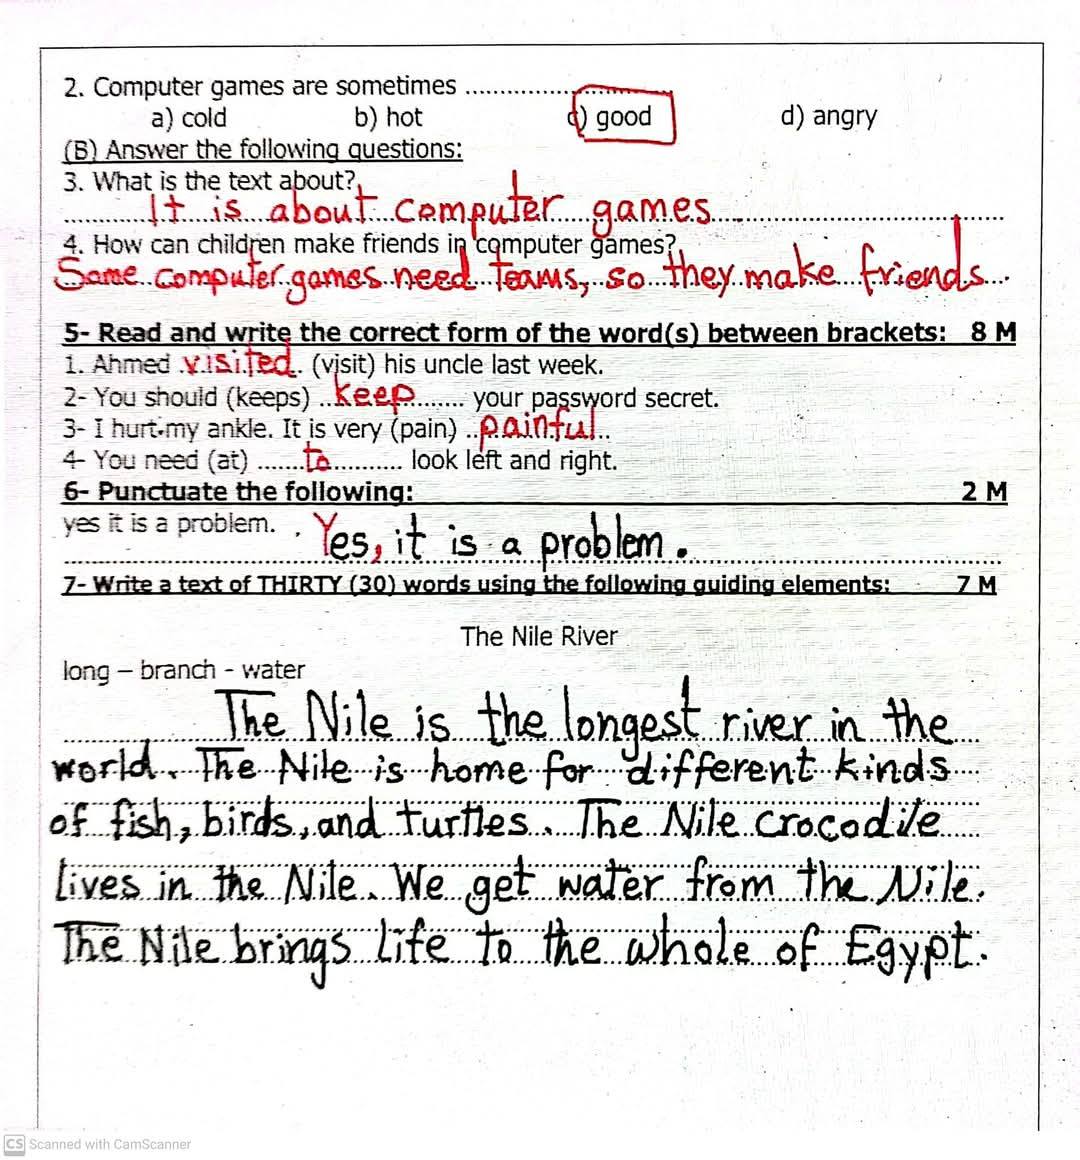 2. Computer games are sometimes ..............................
a) cold b) hot c) good d) angry
(B) Answer the following questions:
3. What is the text about?
It is about computer games
4. How can children make friends in computer games?
Some computer games need Teams, so they make friends
5- Read and write the correct form of the word(s) between brackets: 8 M
1. Ahmed visited. (visit) his uncle last week.
2- You should (keeps) ..keep........ your password secret.
3- I hurt my ankle. It is very (pain) ..painful..
4- You need (at) .......to........... look left and right.
6- Punctuate the following: 2 M
yes it is a problem. Yes, it is a problem.
7- Write a text of THIRTY (30) words using the following guiding elements: 7 M
The Nile River
long – branch - water
The Nile is the longest river in the
world. The Nile is home for different kinds
of fish, birds, and turtles. The Nile crocodile
lives in the Nile. We get water from the Nile.
The Nile brings life to the whole of Egypt.
CS Scanned with CamScanner